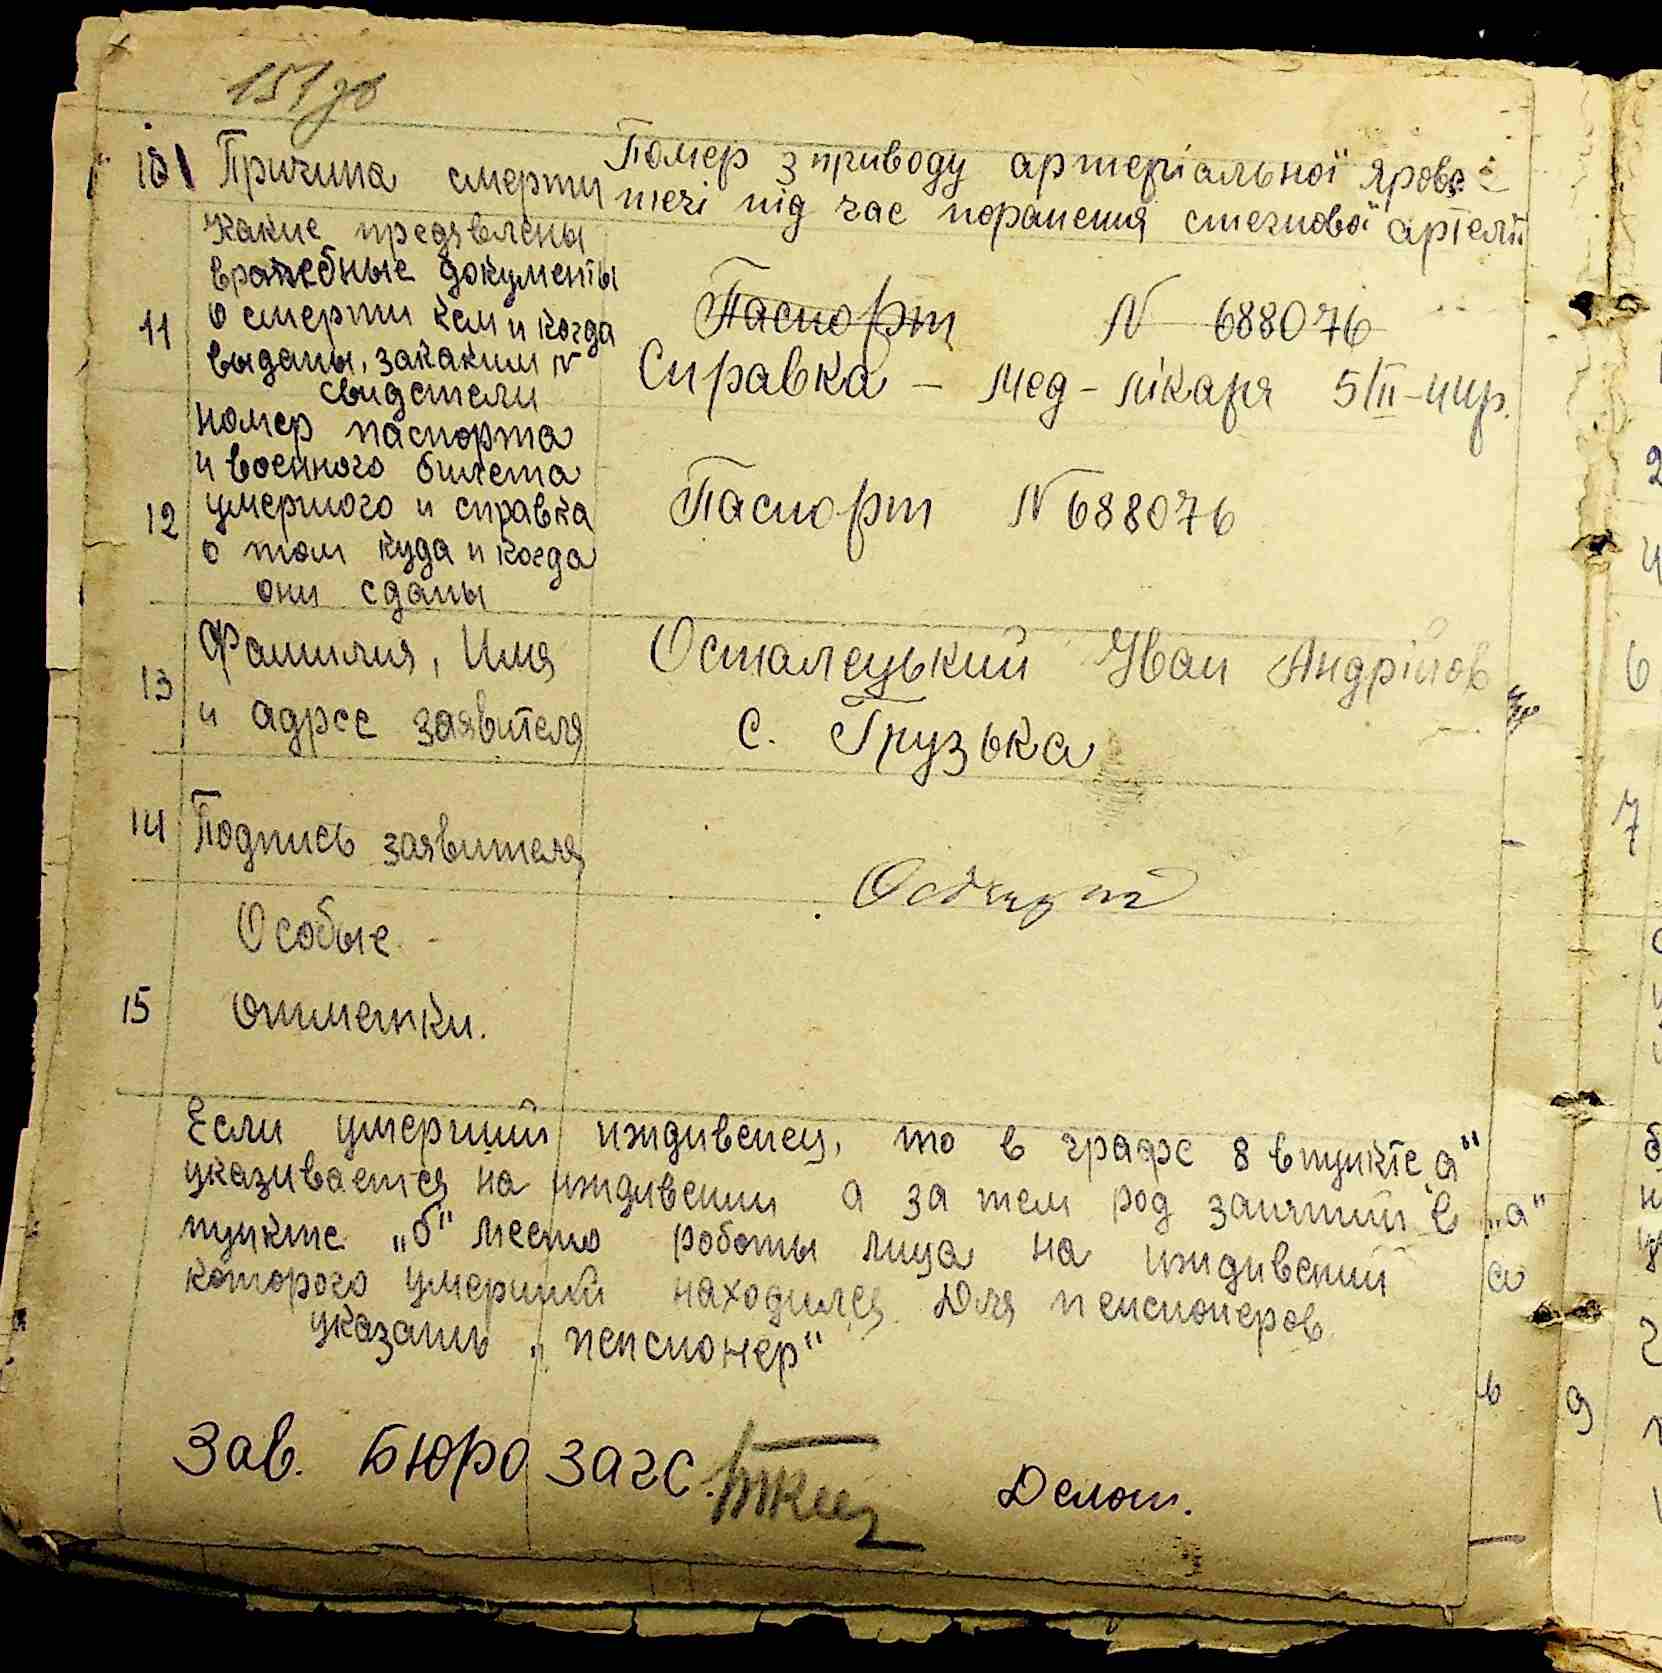 151 зв
10 Причина смерти Помер з приводу артеріальної ярово
течі під час поранення стегнової артелії
Какие предявлены
врачебные документы
11 о смерти кем и когда
выданы, за каким №
свидетели
Паспорт № 688076
Справка - мед-лікаря 5/ІІ-44р.
номер паспорта
и военного билета
12 умершого и справка
о том куда и когда
они сданы
Паспорт № 688076
13 Фамилия, Имя
и адрес заявителя
Осталецький Иван Андрійов
с. Грузька
14 Подпись заявителя
Особые
15 отметки.
Если умерший иждивенец, то в графе 8 в пункте а"
указивается на иждивении а за тем род занятий в „а"
пункте „б" место роботы лица на иждивении а
которого умерший находился. Для пенсионеров
указать „пенсионер"
Зав. Бюро загс. Делот.